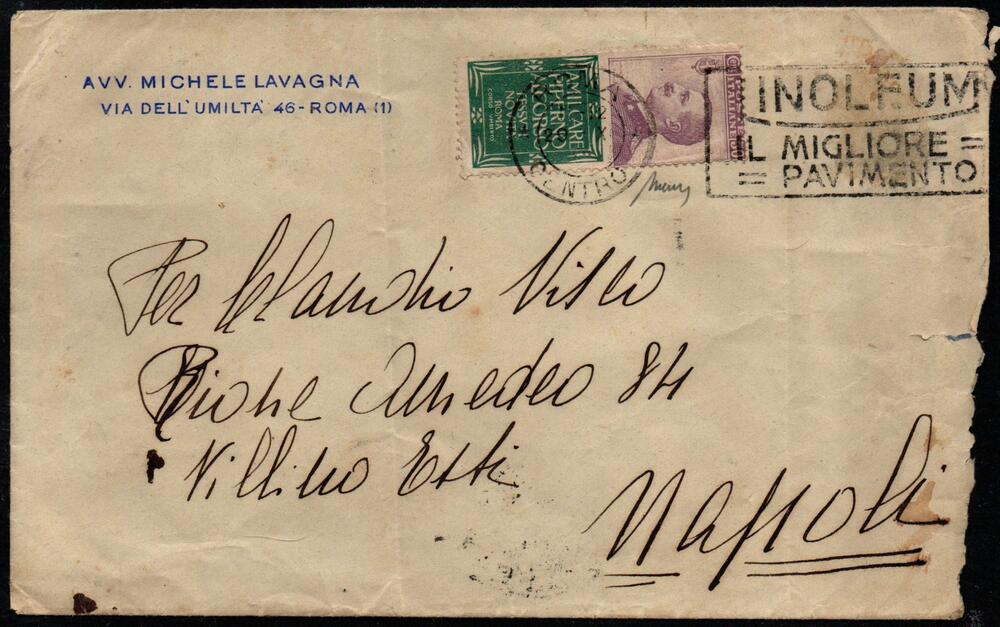 AVV. MICHELE LAVAGNA
VIA DELL'UMILTÀ 46 - ROMA (1)
AMILCARE
PIPERNO
ALCORSO
NOSV
ROMA
CORSO UMBERTO
ITALIANE
CENTRO
INOLEUM
IL MIGLIORE =
= PAVIMENTO
Per Claudio Visco
Rione Amedeo 84
Villino Esti
Napoli